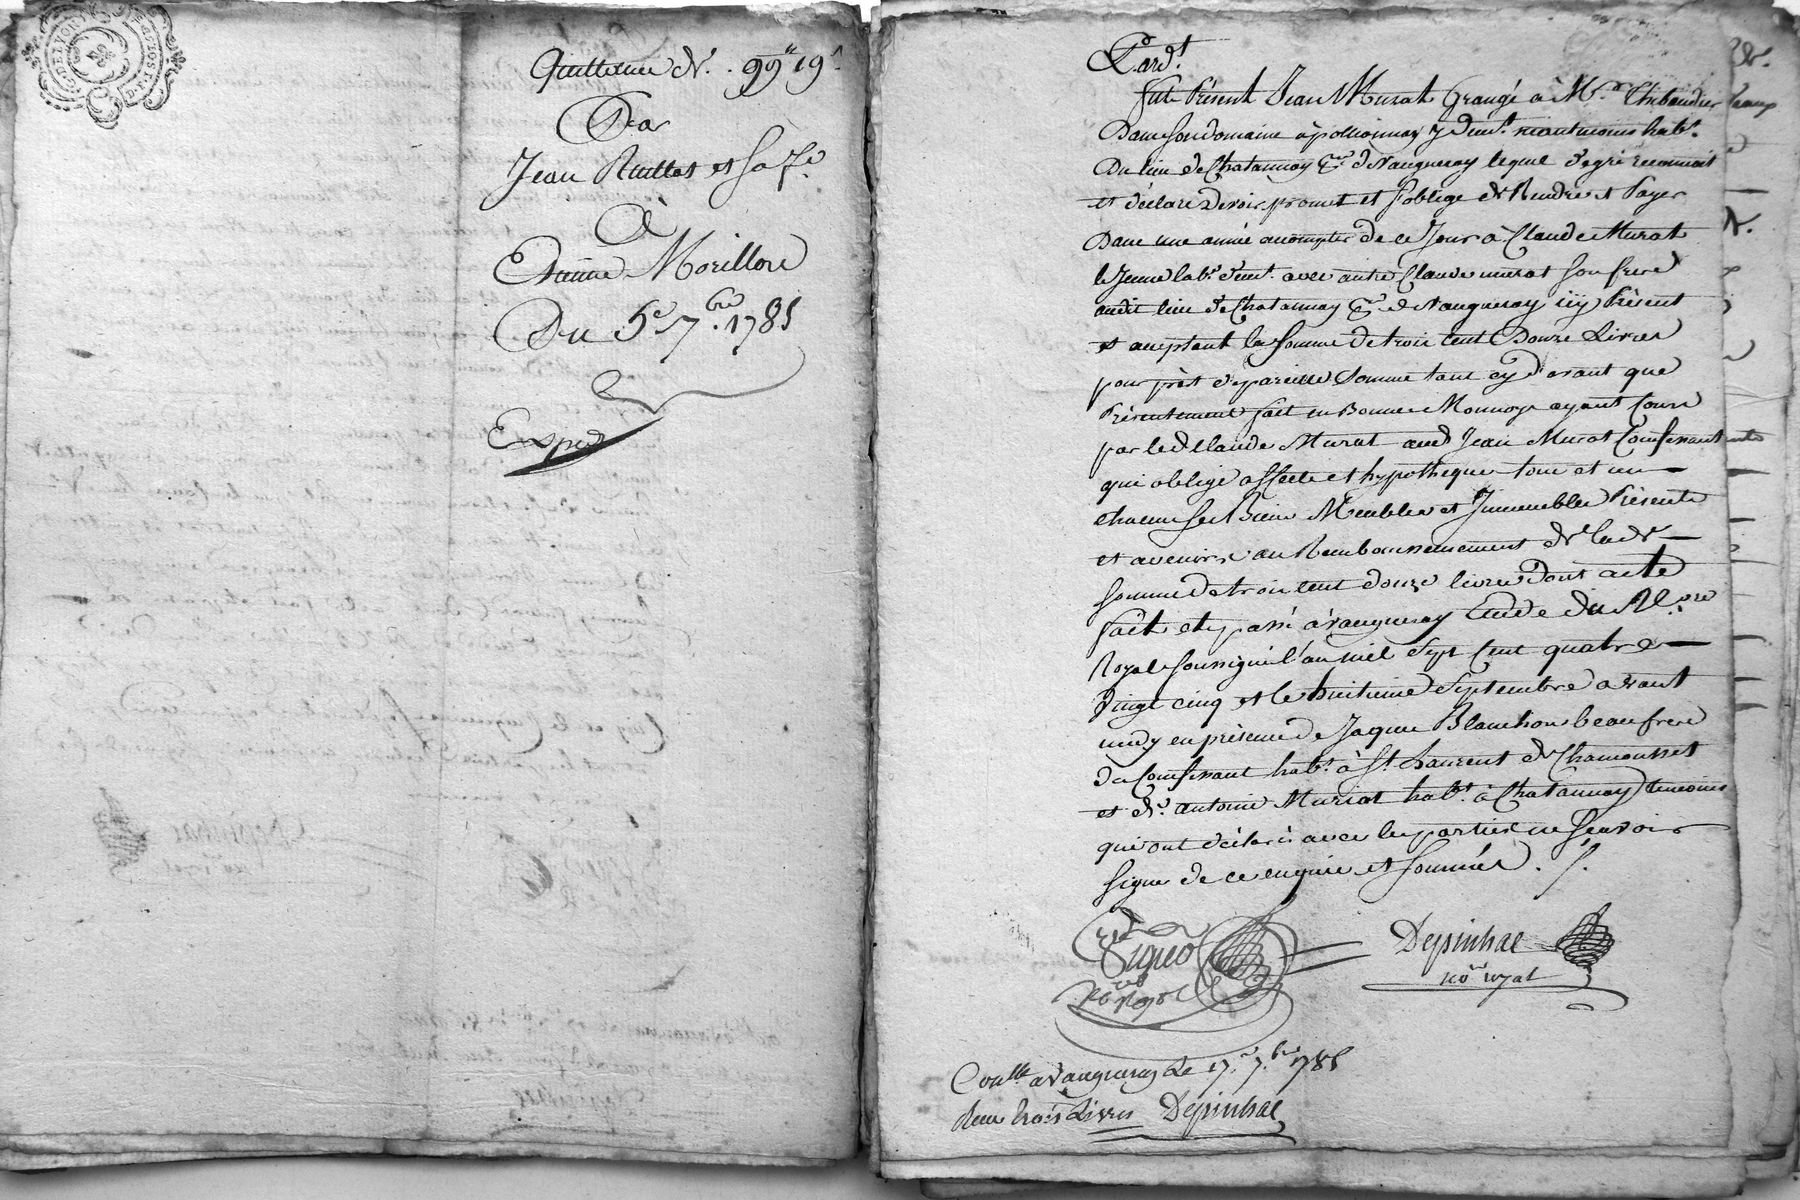 G. DE LYON
Quittance de 99ᵗᵗ 19ˢ
Par
Jean Ruillat et sa fᵉ
À
Etienne Morillon
Du 5ᵉ 7.ᵇʳᵉ 1785
Exped
Pard.ᵗ
fut Présent Jean Murat Grangé à Mʳ Thibaudier
Dans son domaine à pollionnay y demᵗ néantmoins habᵗ
Du lieu de Chatannay de Vaugneray lequel de gré reconnoit
et déclare devoir promet et s'oblige de Rendre et Payer
Dans une année à compter de ce Jour à Claude Murat
le Jeune labʳ demᵗ avec autre Claude murat son frere
audit lieu de Chatannay de Vaugneray icy Présent
et acceptant la somme de trois cent Douze Livres
pour prêt de pareille Somme tant cy devant que
Présentement fait en Bonne Monnoye ayant Cours
par led Claude Murat aud Jean Murat Confessant
qui oblige affecte et hypotheque tous et un
chacuns ses Biens Meubles et Immeubles Présents
et avenirs au Remboursemement de lade
somme de trois cent douze livres dont acte
fait et passé à vaugneray Etude du Nʳᵉ
Royal soussigné l'an mil Sept Cent quatre
Vingt cinq et le huitieme Septembre avant
midy en présence de Jaques Blanchon beaufrere
du Confessant habᵗ à Sᵗ Laurent de Chamousset
et dᵗ antoine Murat habᵗ à Chatannay temoins
qui ont déclaré avec les parties ne sçavoir
signe de ce enquis et sommés ./.
Depinhac
noʳᵉ royal
Conᵗˡᵉ a Vaugneray Le 17.ᵉ 7.ᵇʳᵉ 1785
Reçu trois Livres Depinhac